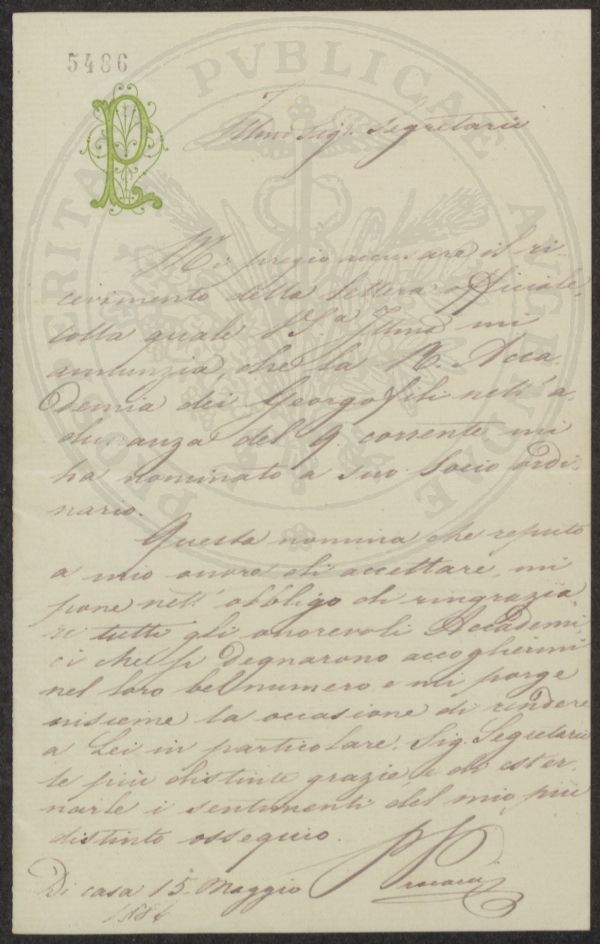 5486
P
Illmo Sig. Segretario
Mi pregio accusare il ri-
cevimento della lettera officiale,
colla quale V. S.a Illma mi
annunzia, che la R. Acca
demia dei Georgofili nell'a
dunanza del 9. corrente mi
ha nominato a suo Socio ordi
nario.
Questa nomina che reputo
a mio onore di accettare, mi
pone nell'obbligo di ringrazia
re tutti gli onorevoli Accademi
ci che si degnarono accogliermi
nel loro bel numero e mi porge
insieme la occasione di rendere
a Lei in particolare, Sig. Segretario
le più distinte grazie, e di ester
narle i sentimenti del mio più
distinto ossequio.
Di casa 15. Maggio
PROSPERITATI PVBLICAE AVGENDAE